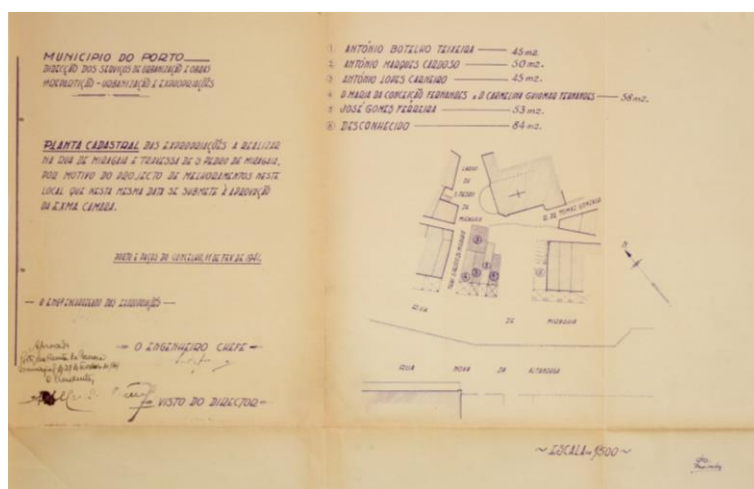 MUNICIPIO DO PORTO
DIRECÇÃO DOS SERVIÇOS DE URBANIZAÇÃO E OBRAS
1ª REPARTIÇÃO - URBANIZAÇÃO E EXPROPRIAÇÕES
PLANTA CADASTRAL DAS EXPROPRIAÇÕES A REALIZAR
NA RUA DE MIRAGAIA E TRAVESSA DE S. PEDRO DE MIRAGAIA,
POR MOTIVO DO PROJECTO DE MELHORAMENTOS NESTE
LOCAL QUE NESTA MESMA DATA SE SUBMETE À APROVAÇÃO
DA EXMA CAMARA.
PORTO E PAÇOS DO CONCELHO, 11 DE FEV. DE 1941.
— O ENCARREGADO DAS EXPROPRIAÇÕES —
— O ENGENHEIRO CHEFE —
Aprovado
O Presidente,
— VISTO DO DIRECTOR —
1 ANTÓNIO BOTELHO TEIXEIRA — 45 m2.
2 ANTÓNIO MARQUES CARDOSO — 50 m2.
3 ANTÓNIO LOPES CARNEIRO — 45 m2.
4 D. MARIA DA CONCEIÇÃO FERNANDES e D. CARMELINA GUIOMAR FERNANDES — 58 m2.
5 JOSÉ GOMES FERREIRA — 53 m2.
6 DESCONHECIDO — 84 m2.
LARGO
DE
S. PEDRO
DE
MIRAGAIA
R. DE TOMAZ GONZAGA
TRAV. S. PEDRO DE MIRAGAIA
RUA DE MIRAGAIA
RUA NOVA DA ALFANDEGA
~ ESCALA = 1/500 ~